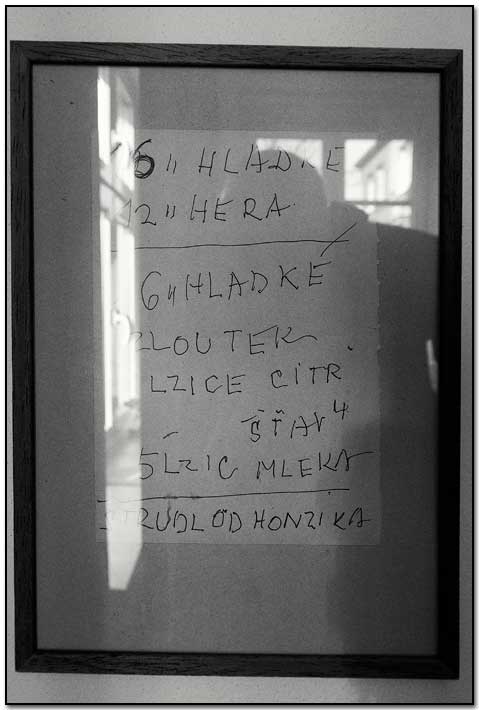 16 " HLADKÉ
12 " HERA
6 " HLADKÉ
ŽLOUTEK
LZICE CITR
ŠŤAV
5 LZIC MLEKA
STRUDL OD HONZIKA